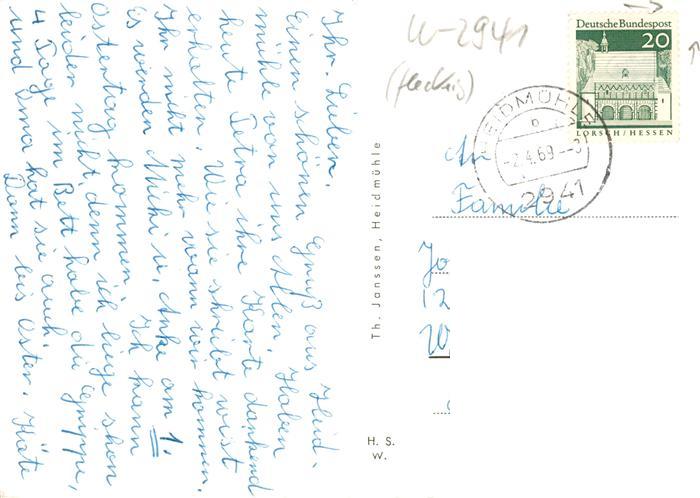 Ihr Lieben.
Einen schönen Gruß aus Heid-
mühle von uns Allen. Haben
heute Petra ihre Karte dankend
erhalten. Wie sie schreibt wist
Ihr nicht mehr wann wir kommen.
Es werden Michi u. Anke am 1.
Ostertag kommen, ich kann
leider nicht denn ich liege schon
4 Tage im Bett habe die Grippe,
und Oma hat sie auch.
Dann bis Ostern. Käte
W-2941
(fleckig)
Deutsche Bundespost
20
LORSCH/HESSEN
HEIDMÜHLE
-2.4.69
2941
An
Familie
Jo
12
W
Th. Janssen, Heidmühle
H. S.
W.